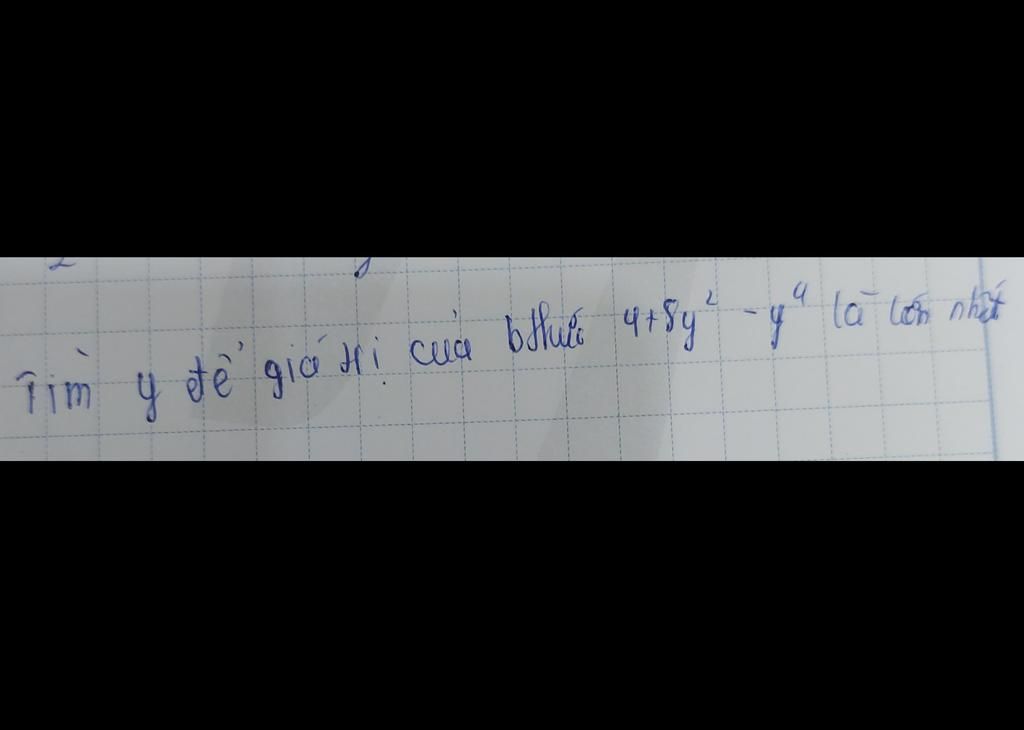 Tìm y để giá trị của bthức 4+8y² - y⁴ là lớn nhất